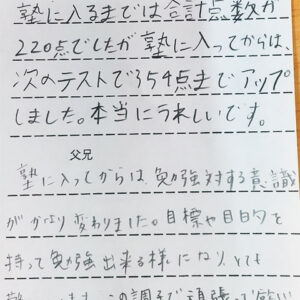 塾に入るまでは合計点数が
220点でしたが塾に入ってからは、
次のテストで354点までアップ
しました。本当にうれしいです。
父兄
塾に入ってからは、勉強対する意識
がかなり変わりました。目標や目的を
持って勉強出来る様になり、とても
この調子で頑張って欲しい